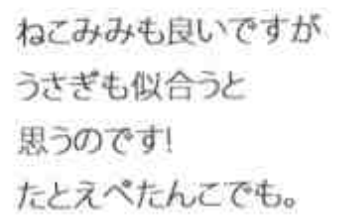 ねこみみも良いですが
うさぎも似合うと
思うのです!
たとえぺたんこでも。